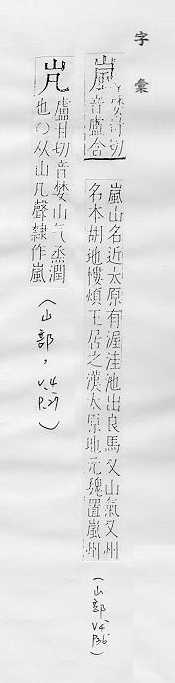 字彙
嵐
切
音盧合
嵐山名近太原有渥洼池出良馬又山氣又州
名本胡地樓煩王居之漢太原地元魏置嵐州
(山部 V4 P36)
盧甘切音婪山气烝潤
也○从山凡聲隸作嵐
(山部, V.4 P.27)